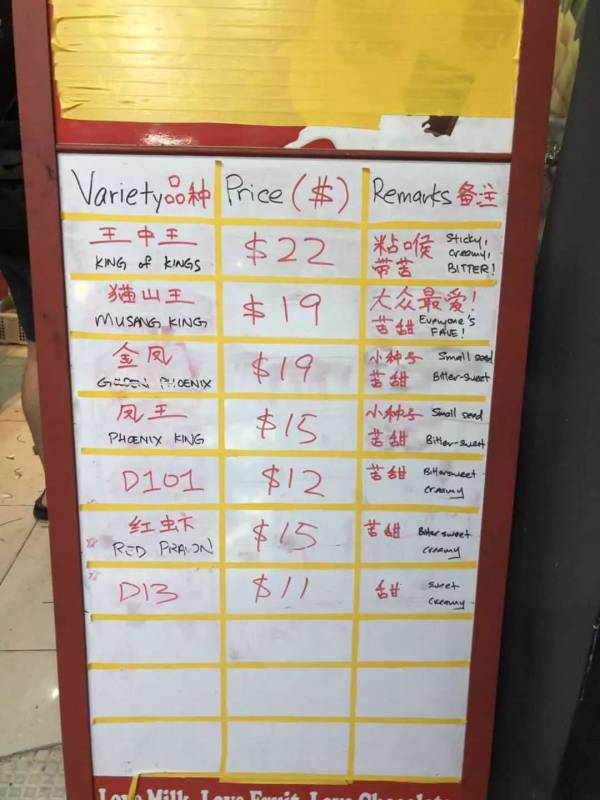 Variety品种 Price ($) Remarks 备注
王中王 $22 粘喉 Sticky, creamy,
KING of KINGS 带苦 BITTER!
猫山王 $19 大众最爱!
MUSANG KING 苦甜 Everyone's FAVE!
金凤 $19 小种子 Small seed
GOLDEN PHOENIX 苦甜 Bitter-sweet
凤王 $15 小种子 Small seed
PHOENIX KING 苦甜 Bitter-sweet
D101 $12 苦甜 Bittersweet creamy
红虾 $15 苦甜 Bitter sweet
RED PRAWN creamy
D13 $11 甜 sweet creamy
Love Milk, Love Fruit, Love Chocolate